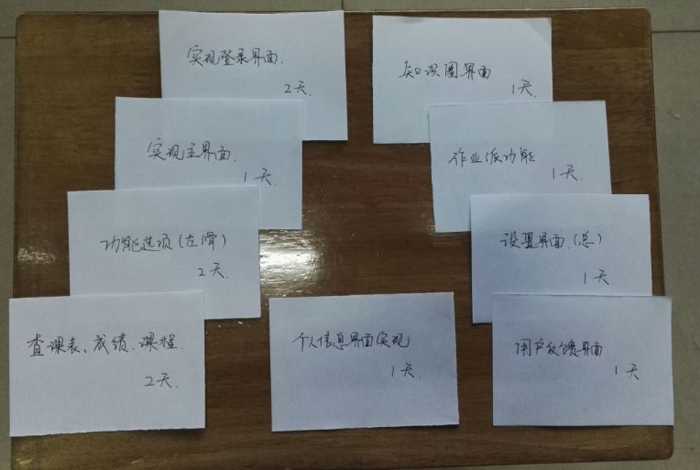 实现登录界面.
2天.
实现主界面.
1天.
功能选项(左滑)
2天.
查课表、成绩、课程
2天.
个人信息界面实现
1天.
知识圈界面
1天.
作业派功能
1天.
设置界面.(总)
1天
用户反馈界面
1天